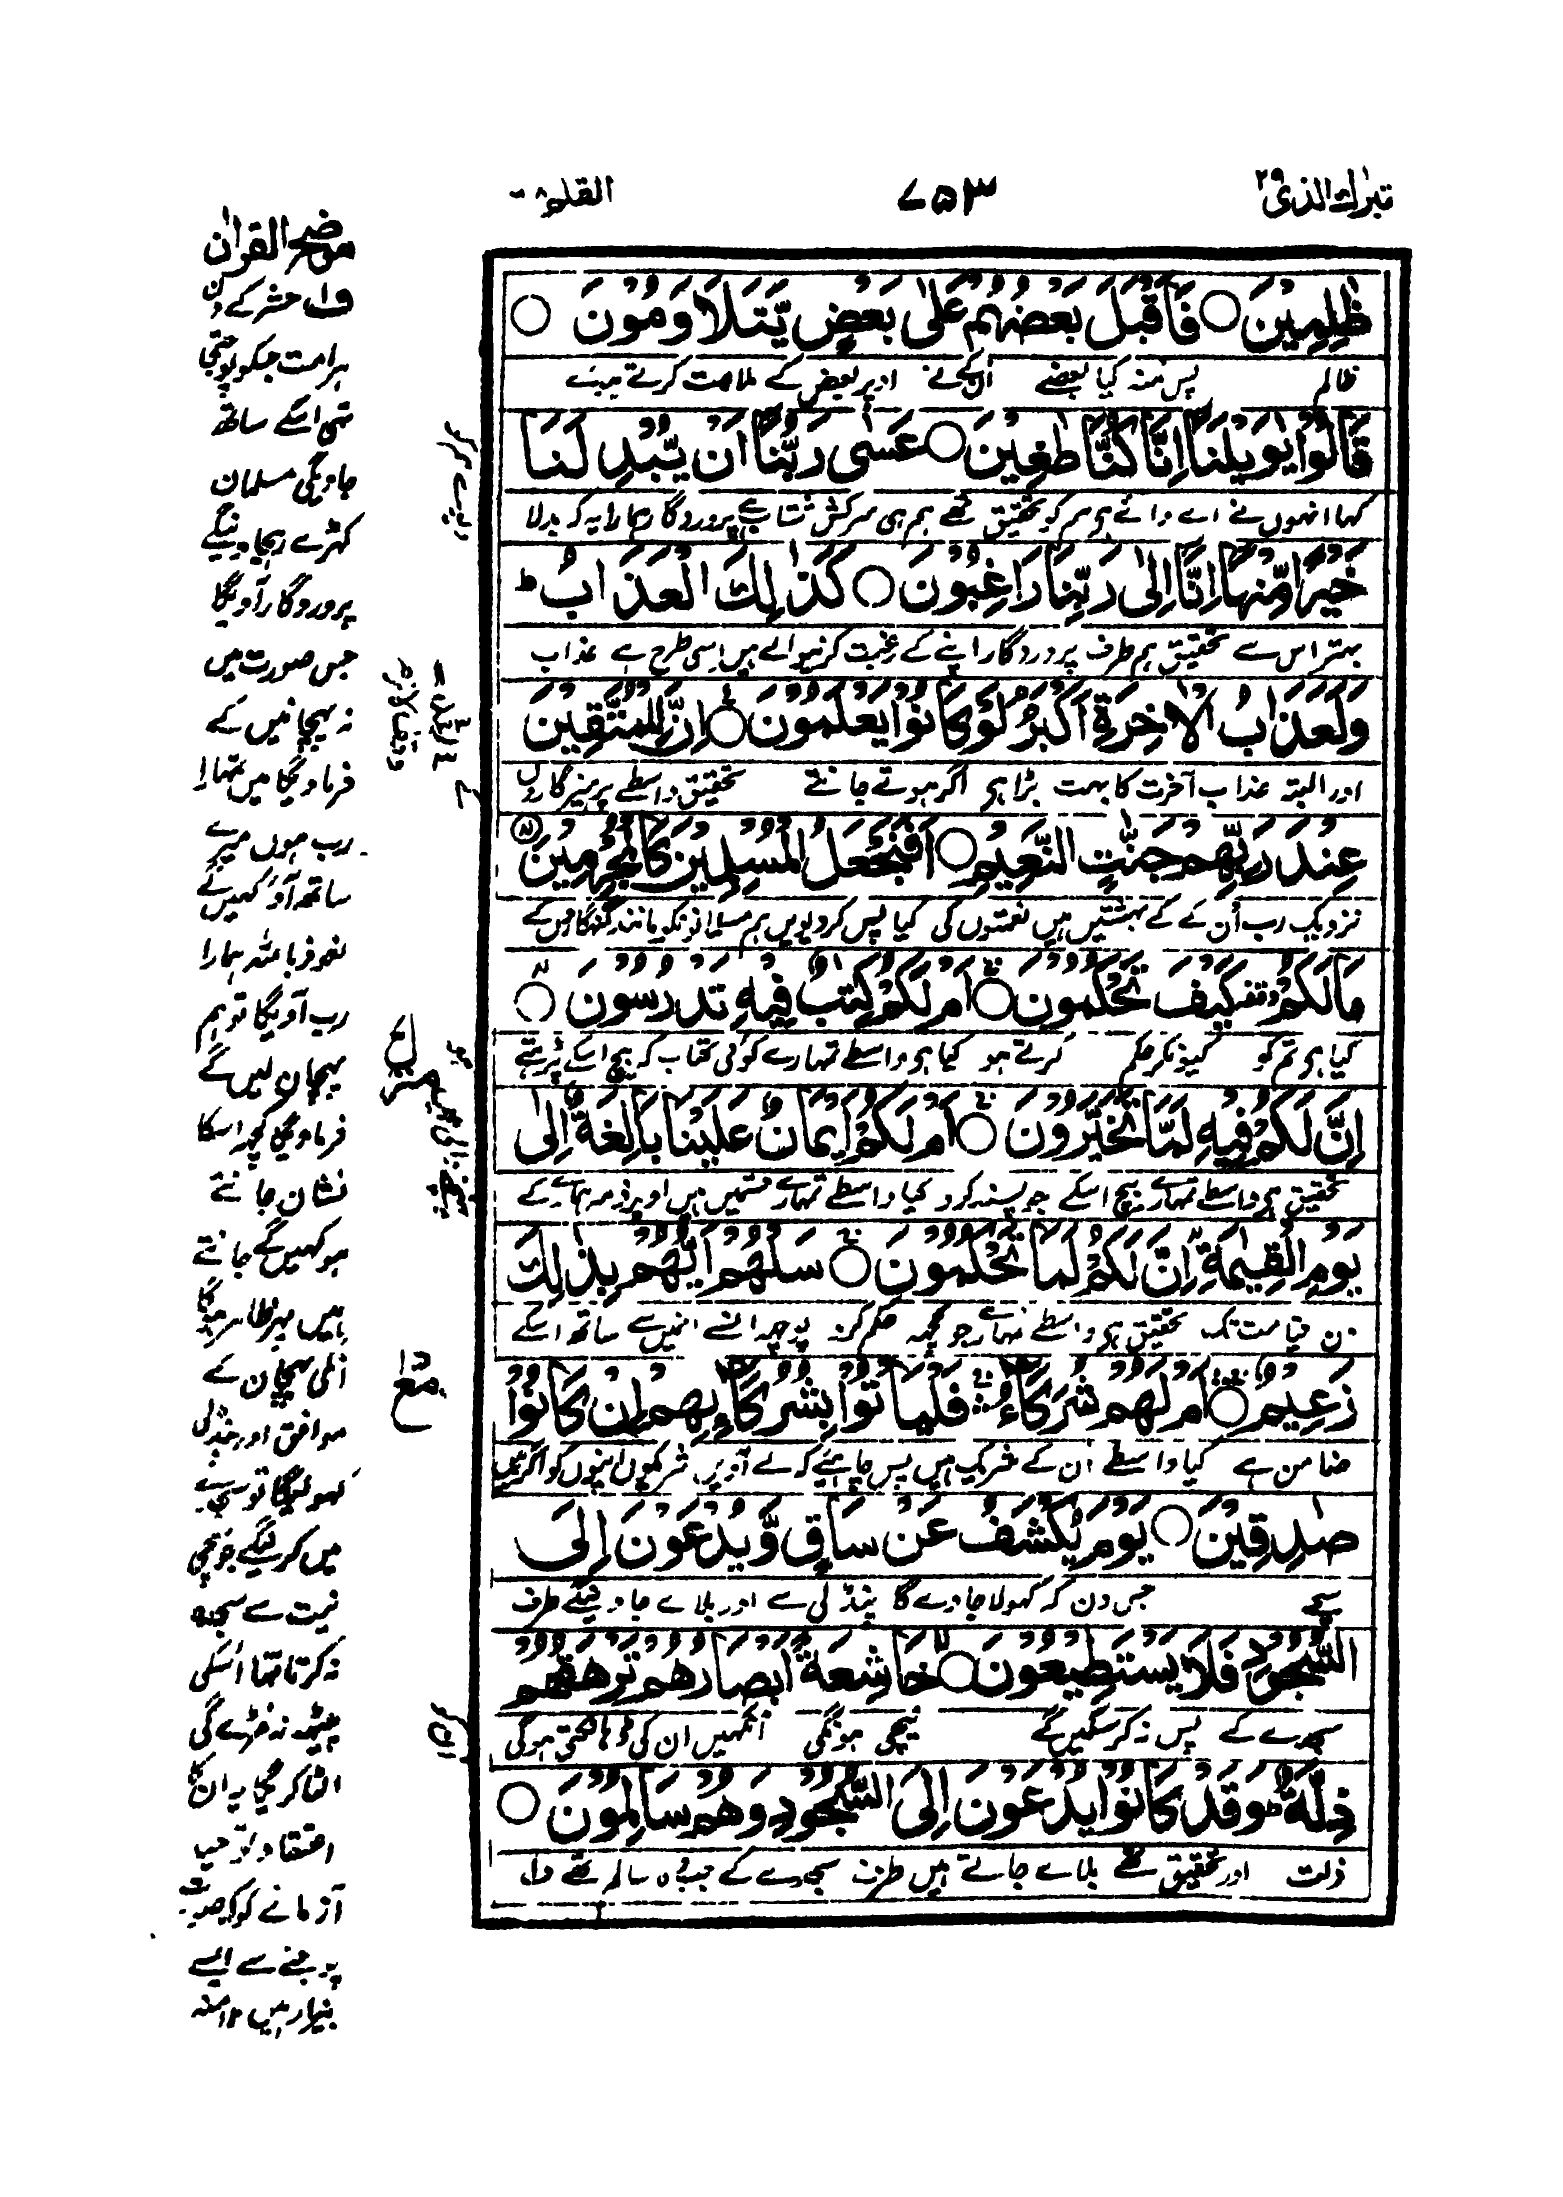 تبٰرك الذی ٢٩
٧٥٣
القلم ٦٨
ظٰلِمِيْنَ ○ فَاَقْبَلَ بَعْضُهُمْ عَلٰى بَعْضٍ يَّتَلَاوَمُوْنَ ○
ظالم پس منہ کیا بعضے اُن کے نے اوپر بعض کے ملامت کرتے
قَالُوْا يٰوَيْلَنَا اِنَّا كُنَّا طٰغِيْنَ ○ عَسٰى رَبُّنَا اَنْ يُّبْدِلَنَا
کہا انہوں نے اے وائے ہم کو تحقیق تھے ہم ہی سرکش شتاب ہے پروردگار ہمارا یہ کہ بدلا
خَيْرًا مِّنْهَا اِنَّا اِلٰى رَبِّنَا رَاغِبُوْنَ ○ كَذٰلِكَ الْعَذَابُ ط
بہتر اس سے تحقیق ہم طرف پروردگار اپنے کے رغبت کرنیوالے ہیں اسی طرح ہے عذاب
وَلَعَذَابُ الْاٰخِرَةِ اَكْبَرُ لَوْ كَانُوْا يَعْلَمُوْنَ ○ اِنَّ لِلْمُتَّقِيْنَ
اور البتہ عذاب آخرت کا بہت بڑا ہی اگر ہوتے جانتے تحقیق واسطے پرہیزگاروں
عِنْدَ رَبِّهِمْ جَنّٰتِ النَّعِيْمِ ○ اَفَنَجْعَلُ الْمُسْلِمِيْنَ كَالْمُجْرِمِيْنَ
نزدیک رب اُن کے کے بہشتیں ہیں نعمتوں کی کیا پس کر دیویں ہم مسلمانونکو مانند گنہگاروں کے
مَا لَكُمْ كَيْفَ تَحْكُمُوْنَ ○ اَمْ لَكُمْ كِتٰبٌ فِيْهِ تَدْرُسُوْنَ ○
کیا ہی تم کو کیونکر حکم کرتے ہو کیا ہی واسطے تمہارے کوئی کتاب کہ بیچ اسکے پڑھتے
اِنَّ لَكُمْ فِيْهِ لَمَا تَخَيَّرُوْنَ ○ اَمْ لَكُمْ اَيْمَانٌ عَلَيْنَا بَالِغَةٌ اِلٰى
تحقیق ہی واسطے تمہارے بیچ اسکے جو پسند کرو کیا واسطے تمہارے قسمیں ہیں اوپر ذمہ ہمارے کے
يَوْمِ الْقِيٰمَةِ اِنَّ لَكُمْ لَمَا تَحْكُمُوْنَ ○ سَلْهُمْ اَيُّهُمْ بِذٰلِكَ
دن قیامت تک تحقیق ہی واسطے تمہارے جو کچھ حکم کرو پوچھ انسے انمیں سے ساتھ اسکے
زَعِيْمٌ ○ اَمْ لَهُمْ شُرَكَآءُ فَلْيَاْتُوْا بِشُرَكَآئِهِمْ اِنْ كَانُوْا
ضامن ہے کیا واسطے اُن کے شریک ہیں پس چاہئے کہ لے آویں شریکوں اپنوں کو اگر ہیں
صٰدِقِيْنَ ○ يَوْمَ يُكْشَفُ عَنْ سَاقٍ وَّيُدْعَوْنَ اِلَى
سچے جس دن کہ کھولا جاوے گا پنڈلی سے اور بلاے جاوینگے طرف
السُّجُوْدِ فَلَا يَسْتَطِيْعُوْنَ ○ خَاشِعَةً اَبْصَارُهُمْ تَرْهَقُهُمْ
سجدے کے پس نہ کر سکیں گے نیچی ہونگی آنکھیں ان کی ڈھانکتی ہوگی
ذِلَّةٌ ط وَقَدْ كَانُوْا يُدْعَوْنَ اِلَى السُّجُوْدِ وَهُمْ سَالِمُوْنَ ○
ذلت اور تحقیق تھے بلاے جاتے ہیں طرف سجدے کے سالم تھے
موضح القرآن
ف١ حشر کے دن
ہر امت جسکو پوجتی
تھی اسکے ساتھ
جاویگی مسلمان
کھڑے رہجاوینگے
پروردگار آویگا
جس صورت میں
نہ پہچانیں کے
فرماویگا میں تمہارا
رب ہوں میرے
ساتھ آؤ کہیں گے
نعوذ باللہ ہمارا
رب آویگا تو ہم
پہچان لیں گے
فرماویگا کچھ اسکا
نشان جانتے
ہو کہیں گے جانتے
ہیں پھر ظاہر
پہچان کے
موافق اور
کھولیگا تو سب
نیت سے سجدہ
نہ کرتا تھا اسکی
پیٹھ نہ مڑے گی
اعتقاد
آزمانے کو